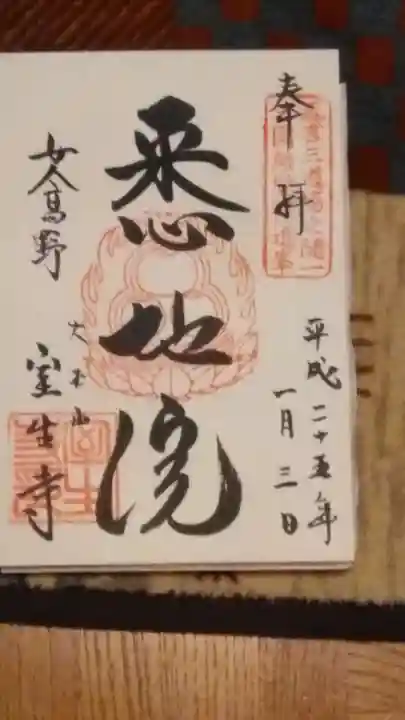 奉拝
平成二十五年
一月三日
悉地院
女人高野
大本山
室生寺